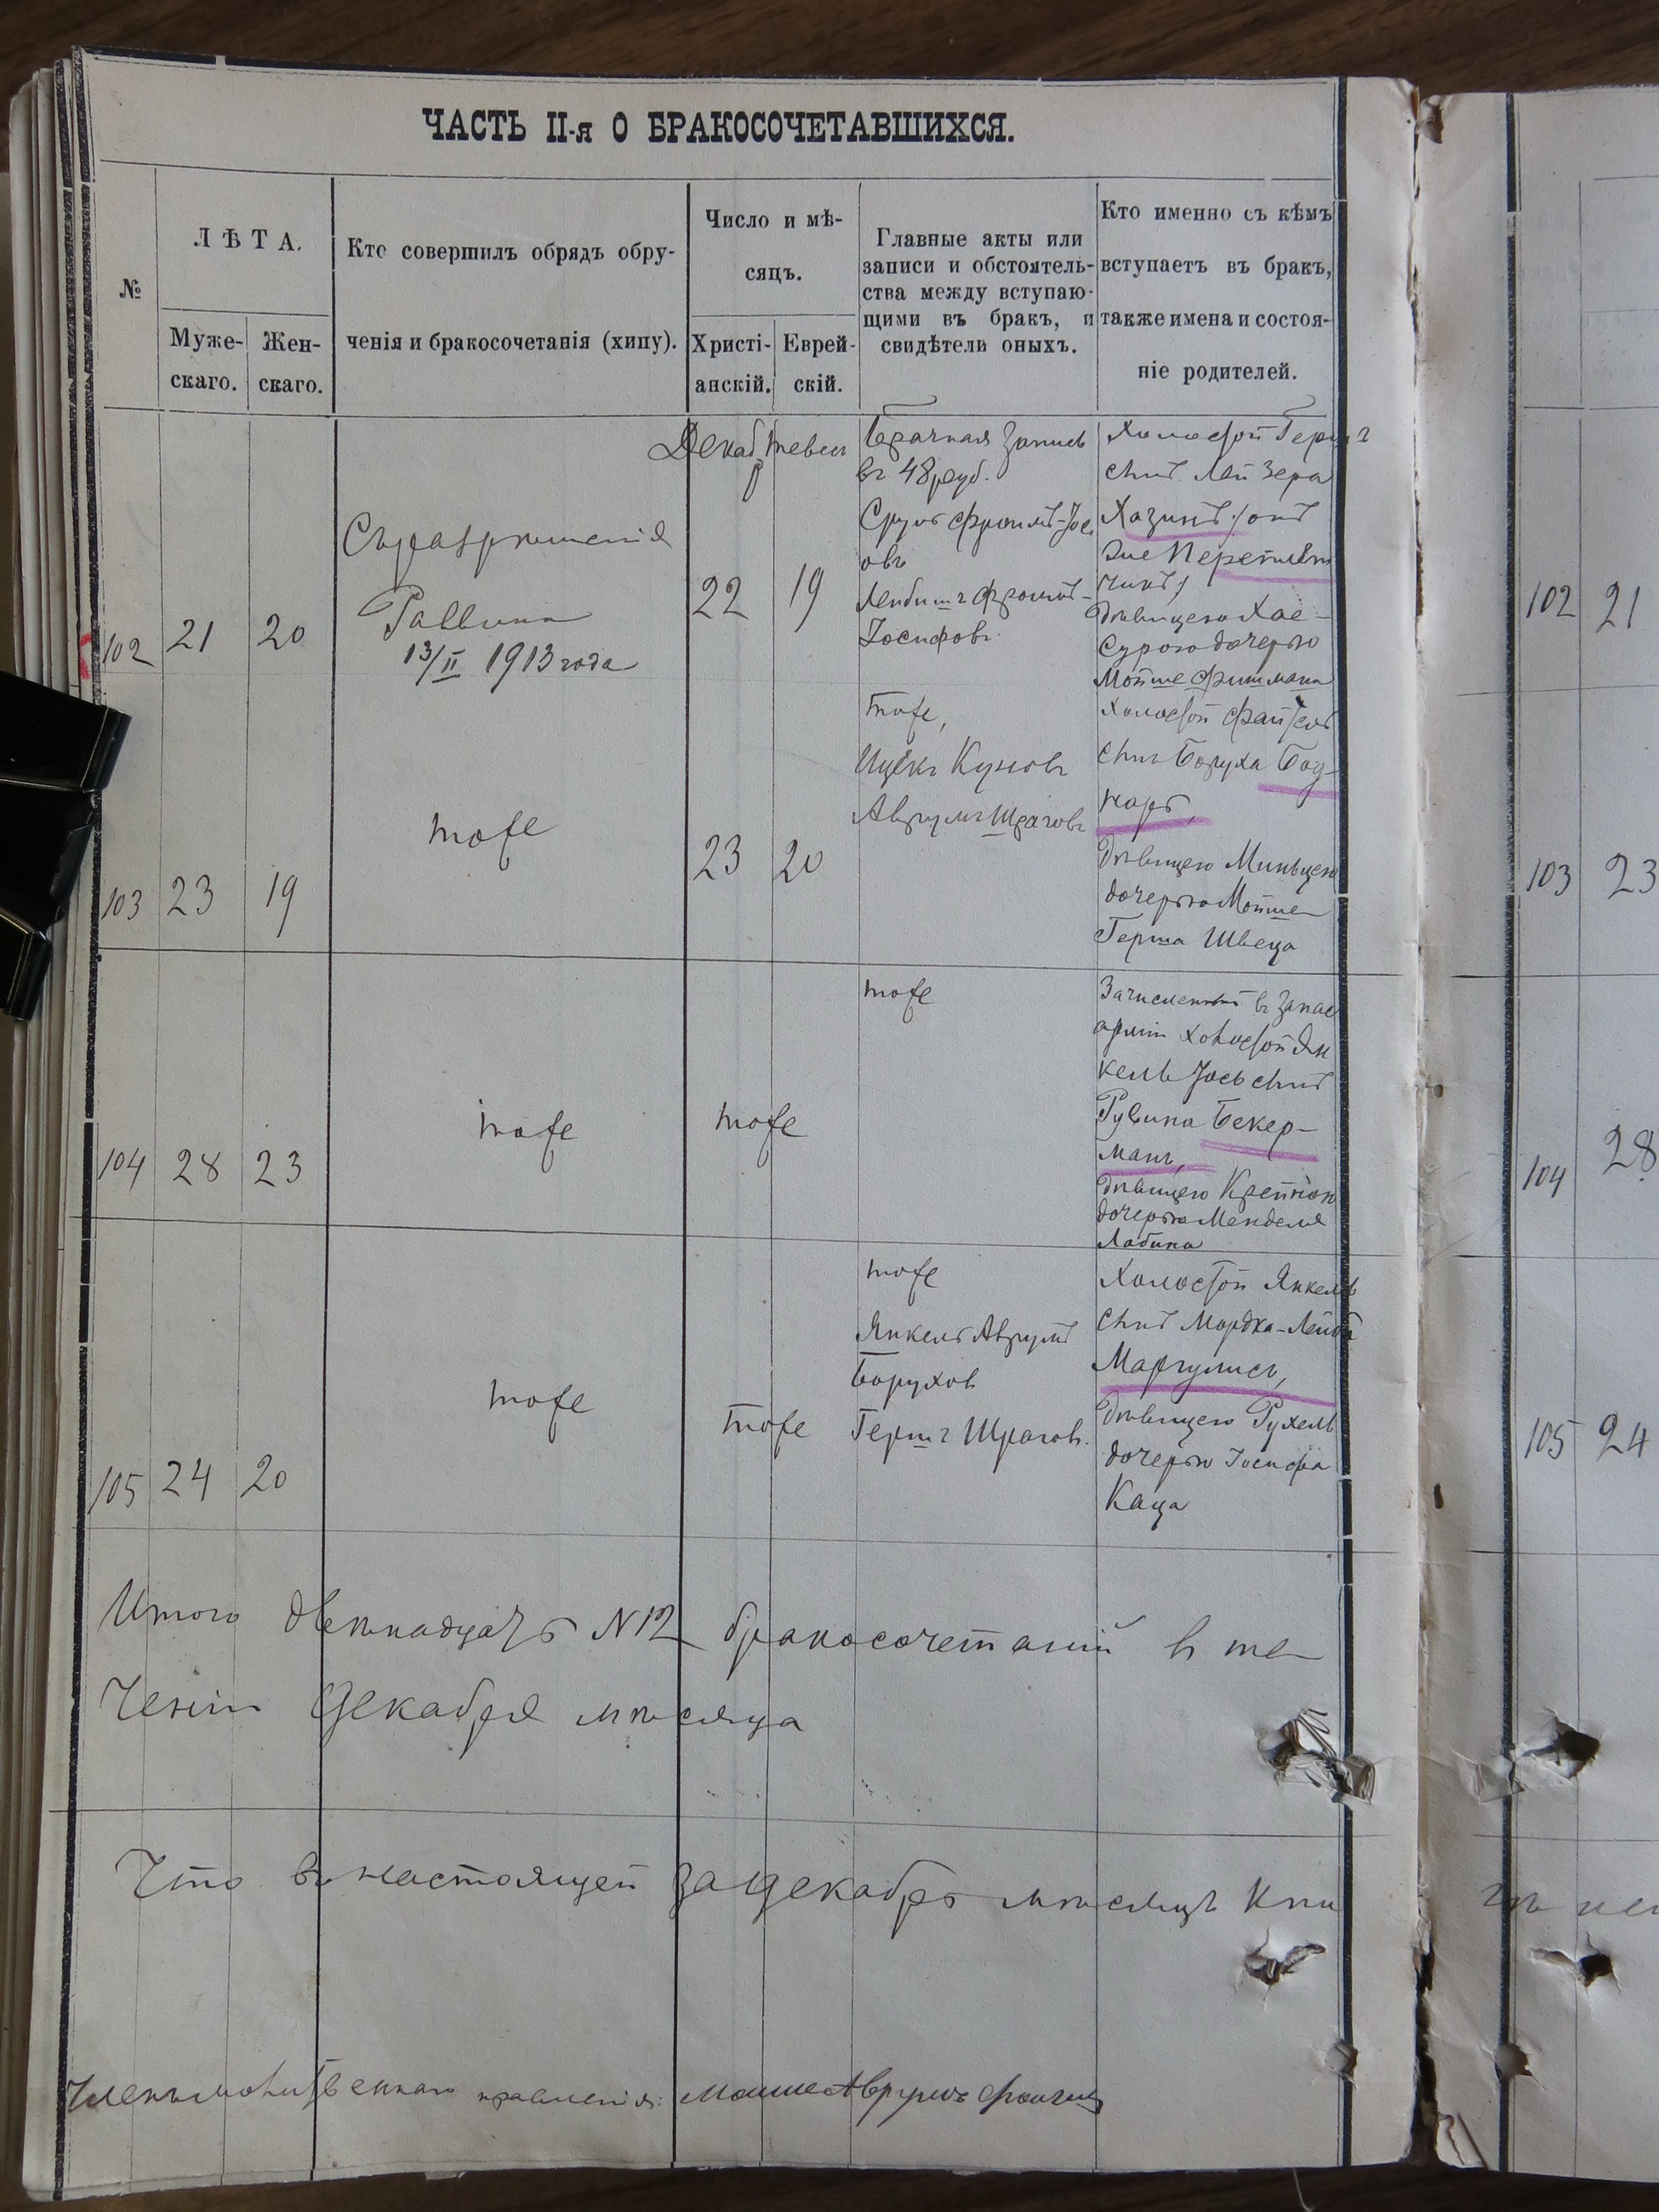 ЧАСТЬ II-я О БРАКОСОЧЕТАВШИХСЯ.
№
ЛѢТА.
Муже-
скаго.
Жен-
скаго.
Кто совершилъ обрядъ обру-
ченія и бракосочетанія (хипу).
Число и мѣ-
сяцъ.
Христі-
анскій.
Еврей-
скій.
Главные акты или
записи и обстоятель-
ства между вступаю-
щими въ бракъ, и
свидѣтели оныхъ.
Кто именно съ кѣмъ
вступаетъ въ бракъ,
также имена и состоя-
ніе родителей.
102
21
20
Съ разрѣшенія
Раввина
13/II 1913 года
Декаб
22
Тевеп
19
Брачная запись
въ 48 руб.
Сруль Фроимъ-Іос
овъ
Лейбишъ Фроимъ-
Іосифовъ.
Холостой Гершъ
сынъ Лейзера
Хазинъ /онъ
же Переплет
чикъ/
Дѣвицею Хае-
Сурою дочерью
Мойше Фишмана
103
23
19
тоже
23
20
тоже,
Ицекъ Куновъ
Аврумъ Шраговъ
Холостой Файвель
сынъ Боруха Бод-
наръ,
Дѣвицею Миньцею
дочерью Мойше
Герша Швеца
104
28
23
тоже
тоже
тоже
Зачисленный въ запас
арміи холостой Ян
кель Іось сынъ
Рувина Бекер-
манъ,
Дѣвицею Крейною
дочерью Менделя
Лабина
105
24
20
тоже
тоже
тоже
Янкель Аврумъ
Борухов
Гершъ Шрагов.
Холостой Янкель
сынъ Мордка-Лейба
Маргулисъ,
Дѣвицею Рухель
дочерью Іосифа
Каца
Итого двѣнадцать N12 бракосочетаній в те
ченіи Декабря мѣсяца
Что въ настоящей за декабрь мѣсяцъ кни
Членъ молитвеннаго правленія: Мойше Аврумъ
102 21
103 23
104 28
105 24